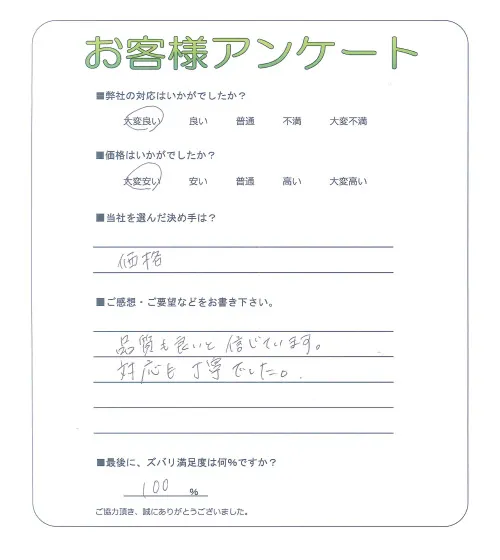 お客様アンケート
■弊社の対応はいかがでしたか？
大変良い 良い 普通 不満 大変不満
■価格はいかがでしたか？
大変安い 安い 普通 高い 大変高い
■当社を選んだ決め手は？
価格
■ご感想・ご要望などをお書き下さい。
品質も良いと信じています。
対応も丁寧でした。
■最後に、ズバリ満足度は何%ですか？
100 %
ご協力頂き、誠にありがとうございました。